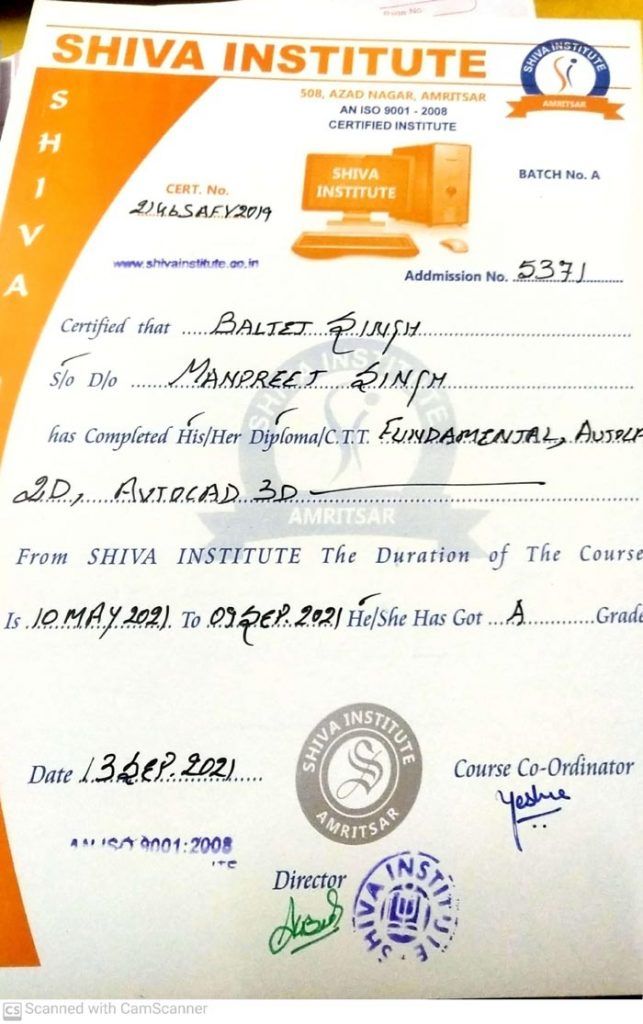 SHIVA INSTITUTE
SHIVA INSTITUTE
AMRITSAR
508, AZAD NAGAR, AMRITSAR
AN ISO 9001 - 2008
CERTIFIED INSTITUTE
SHIVA
SHIVA
INSTITUTE
BATCH No. A
CERT. No.
2146SAFV2019
www.shivainstitute.co.in
Addmission No. 5371
Certified that BALTEJ SINGH
S/o D/o MANPREET SINGH
has Completed His/Her Diploma/C.T.T. FUNDAMENTAL,
2D, AUTOCAD 3D
SHIVA INSTITUTE
AMRITSAR
From SHIVA INSTITUTE The Duration of The Course
Is 10 MAY 2021 To 09 SEP. 2021 He/She Has Got A Grade
SHIVA INSTITUTE
AMRITSAR
Date 13 SEP. 2021
Course Co-Ordinator
AN ISO 9001:2008
Director
SHIVA INSTITUTE
CS Scanned with CamScanner